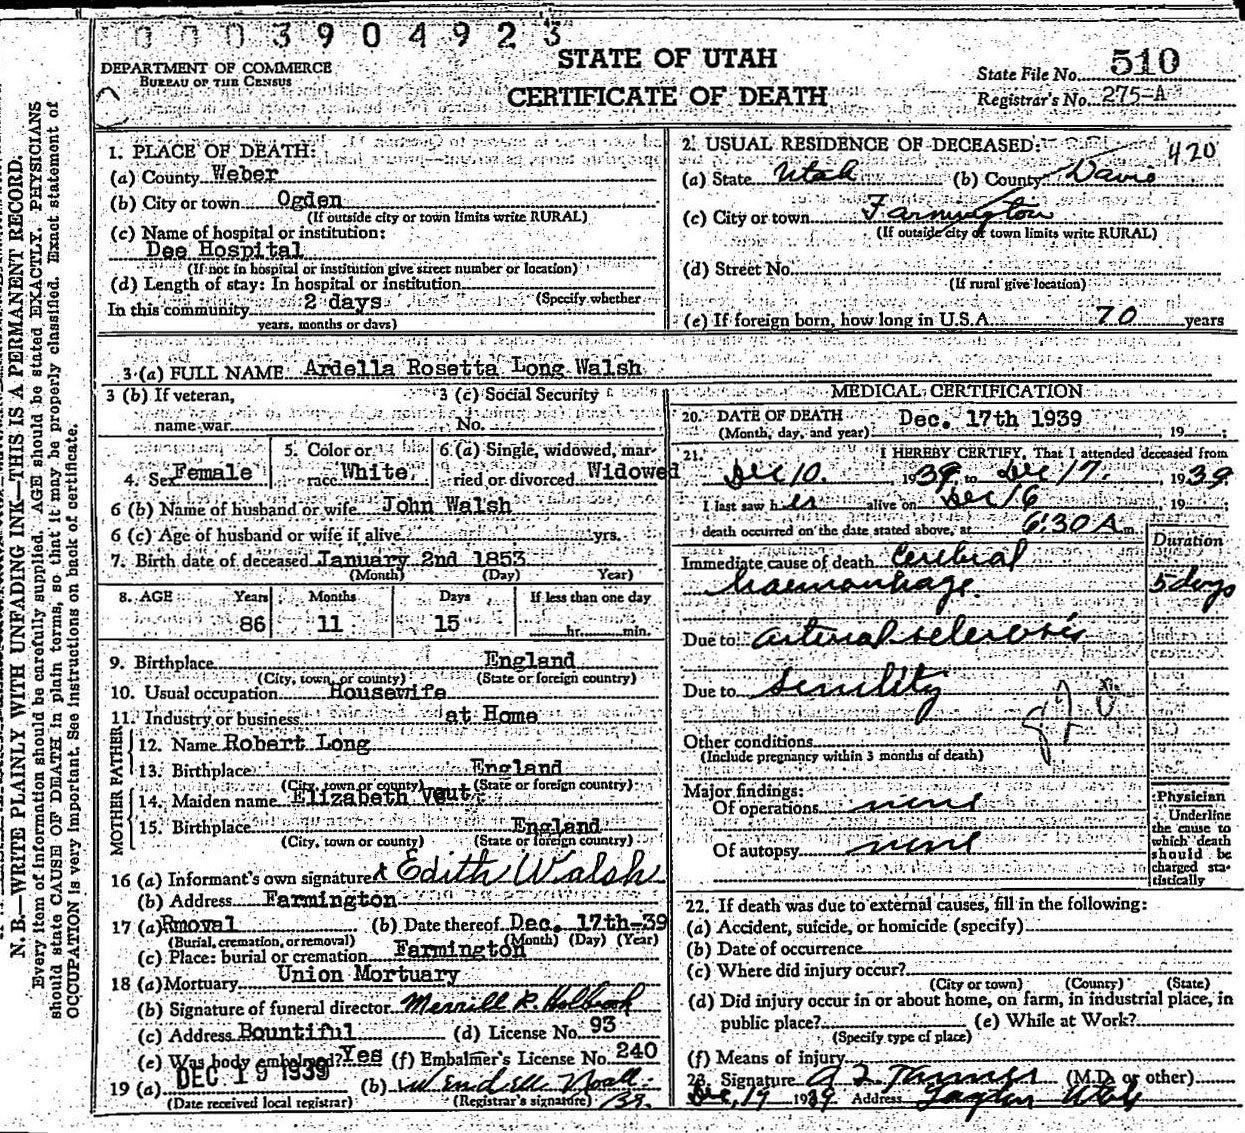 0003904923
STATE OF UTAH
CERTIFICATE OF DEATH
DEPARTMENT OF COMMERCE
BUREAU OF THE CENSUS
State File No. 510
Registrar's No. 275-A
N. B.—WRITE PLAINLY WITH UNFADING INK—THIS IS A PERMANENT RECORD.
Every item of information should be carefully supplied. AGE should be stated EXACTLY. PHYSICIANS
should state CAUSE OF DEATH in plain terms, so that it may be properly classified. Exact statement of
OCCUPATION is very important. See instructions on back of certificate.
1. PLACE OF DEATH:
(a) County Weber
(b) City or town Ogden
(If outside city or town limits write RURAL)
(c) Name of hospital or institution:
Dee Hospital
(If not in hospital or institution give street number or location)
(d) Length of stay: In hospital or institution
(Specify whether
In this community 2 days
years, months or days)
2. USUAL RESIDENCE OF DECEASED:
420
(a) State Utah (b) County Davis
(c) City or town Farmington
(If outside city or town limits write RURAL)
(d) Street No.
(If rural give location)
(e) If foreign born, how long in U.S.A. 70 years
3 (a) FULL NAME Ardella Rosetta Long Walsh
3 (b) If veteran,
name war
3 (c) Social Security
No.
4. Sex Female
5. Color or
race White
6 (a) Single, widowed, mar-
ried or divorced Widowed
6 (b) Name of husband or wife John Walsh
6 (c) Age of husband or wife if alive yrs.
7. Birth date of deceased January 2nd 1853
(Month) (Day) Year)
8. AGE Years Months Days If less than one day
86 11 15 hr. min.
9. Birthplace England
(City, town, or county) (State or foreign country)
10. Usual occupation Housewife
11. Industry or business at Home
FATHER
12. Name Robert Long
13. Birthplace England
(City, town or county) (State or foreign country)
MOTHER
14. Maiden name Elizabeth
15. Birthplace England
(City, town or county) (State or foreign country)
16 (a) Informant's own signature x Edith Walsh
(b) Address Farmington
17 (a) Rmoval (b) Date thereof Dec. 17th-39
(Burial, cremation, or removal) (Month) (Day) (Year)
(c) Place: burial or cremation Farmington
18 (a) Mortuary Union Mortuary
(b) Signature of funeral director Merrill R. Holbrook
(c) Address Bountiful (d) License No. 93
(e) Was body embalmed? Yes (f) Embalmer's License No. 240
19 (a) DEC 19 1939 (b) Wendell Noall
(Date received local registrar) (Registrar's signature) 39.
MEDICAL CERTIFICATION
20. DATE OF DEATH Dec. 17th 1939
(Month, day, and year) , 19 ;
21. I HEREBY CERTIFY, That I attended deceased from
Dec 10. 1939, to Dec 17. , 1939
I last saw her alive on Dec 16 , 19 ;
death occurred on the date stated above, at 6:30 A m.
Duration
Immediate cause of death Cerebral
haemorrhage. 5 days
Due to arterial sclerosis
Due to Senility
Other conditions
(Include pregnancy within 3 months of death)
Major findings:
Of operations none
Of autopsy none
Physician
Underline
the cause to
which death
should be
charged sta-
tistically
22. If death was due to external causes, fill in the following:
(a) Accident, suicide, or homicide (specify)
(b) Date of occurrence
(c) Where did injury occur?
(City or town) (County) (State)
(d) Did injury occur in or about home, on farm, in industrial place, in
public place? (e) While at Work?
(Specify type of place)
(f) Means of injury
23. Signature A Z Tanner (M.D. or other)
Dec, 19 1939 Address Layton Utah